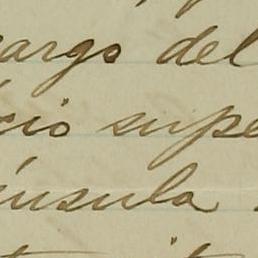 cargo del
cio supe
ínsula